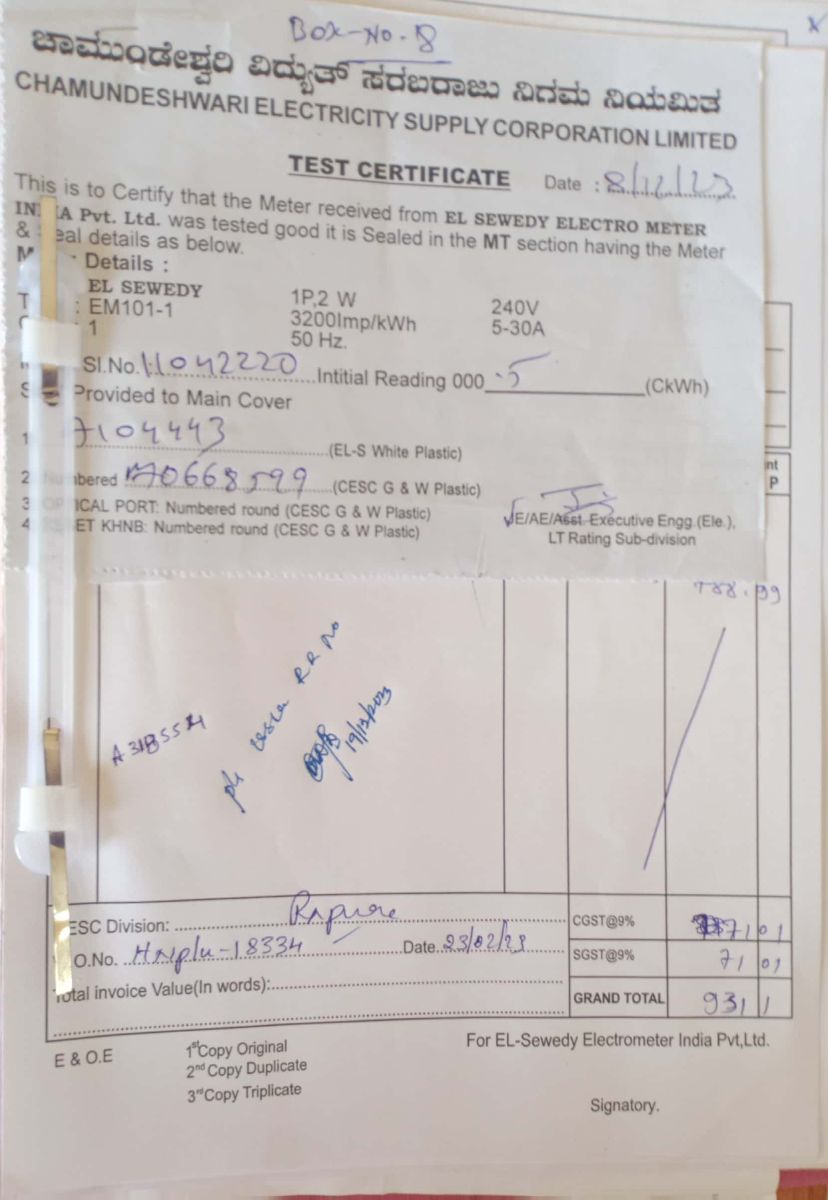 BOX-NO-8
ಚಾಮುಂಡೇಶ್ವರಿ ವಿದ್ಯುತ್ ಸರಬರಾಜು ನಿಗಮ ನಿಯಮಿತ
CHAMUNDESHWARI ELECTRICITY SUPPLY CORPORATION LIMITED
TEST CERTIFICATE Date : 8/12/23
This is to Certify that the Meter received from EL SEWEDY ELECTRO METER
INDIA Pvt. Ltd. was tested good it is Sealed in the MT section having the Meter
& Seal details as below.
Details :
EL SEWEDY 1P,2 W 240V
: EM101-1 3200Imp/kWh 5-30A
: 1 50 Hz.
Sl.No. 11042220 Intitial Reading 000 .5 (CkWh)
Provided to Main Cover
1 7104443 (EL-S White Plastic)
2 Numbered 0668599 (CESC G & W Plastic)
3 OPTICAL PORT: Numbered round (CESC G & W Plastic)
4 RESET KHNB: Numbered round (CESC G & W Plastic)
JE/AE/Asst. Executive Engg.(Ele.),
LT Rating Sub-division
nt
P
788.99
RR No
19/12/2023
CESC Division:
CGST@9% 71 01
O.No. -18334 Date 23/02/23
SGST@9% 71 01
Total invoice Value(In words):
GRAND TOTAL 931 1
E & O.E
1st Copy Original
2nd Copy Duplicate
3rd Copy Triplicate
For EL-Sewedy Electrometer India Pvt,Ltd.
Signatory.